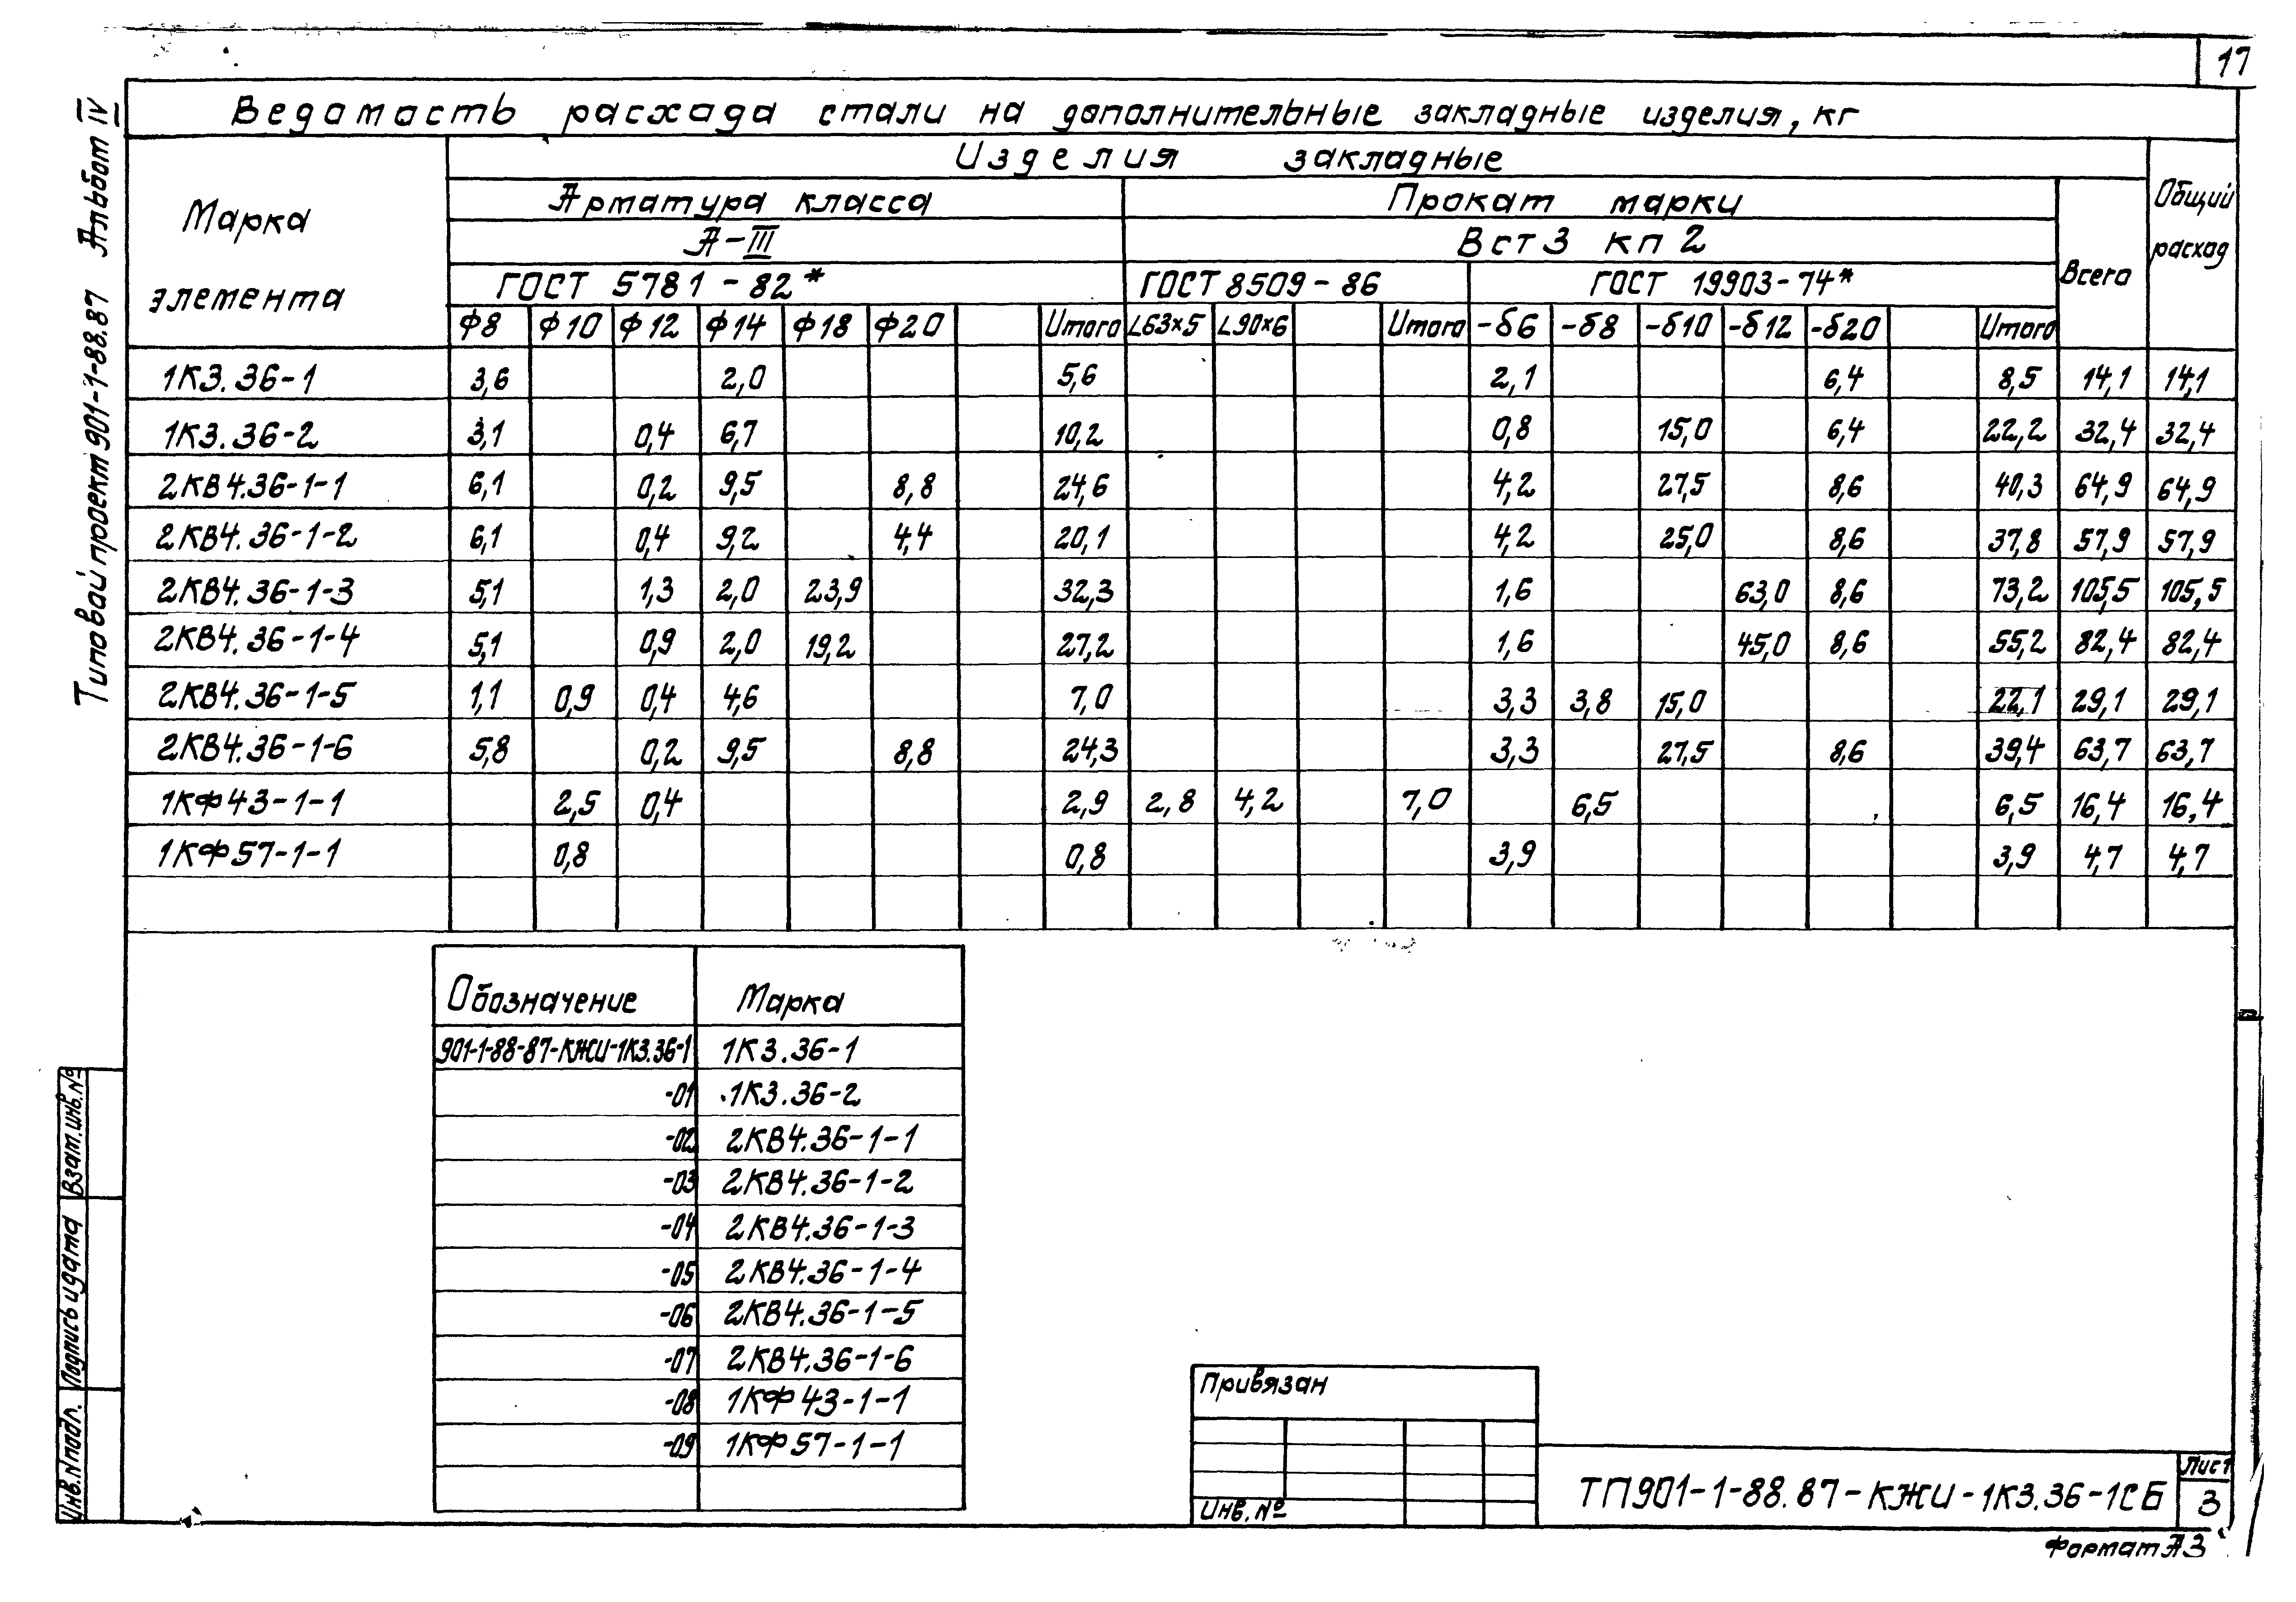 17
Типовой проект 901-1-88.87 Альбом IV
Ведамасть расхада стали на дополнительные закладные изделия, кг
Марка элемента
Изделия закладные
Общий расход
Арматура класса
Прокат марки
Всего
А-III
Вст3 кп 2
ГОСТ 5781-82*
ГОСТ 8509-86
ГОСТ 19903-74*
Ф8 Ф10 Ф12 Ф14 Ф18 Ф20 Итого L63×5 L90×6 Итого -δ6 -δ8 -δ10 -δ12 -δ20 Итого
1К3.36-1 3,6 2,0 5,6 2,1 6,4 8,5 14,1 14,1
1К3.36-2 3,1 0,4 6,7 10,2 0,8 15,0 6,4 22,2 32,4 32,4
2КВ4.36-1-1 6,1 0,2 9,5 8,8 24,6 4,2 27,5 8,6 40,3 64,9 64,9
2КВ4.36-1-2 6,1 0,4 9,2 4,4 20,1 4,2 25,0 8,6 37,8 57,9 57,9
2КВ4.36-1-3 5,1 1,3 2,0 23,9 32,3 1,6 63,0 8,6 73,2 105,5 105,5
2КВ4.36-1-4 5,1 0,9 2,0 19,2 27,2 1,6 45,0 8,6 55,2 82,4 82,4
2КВ4.36-1-5 1,1 0,9 0,4 4,6 7,0 3,3 3,8 15,0 22,1 29,1 29,1
2КВ4.36-1-6 5,8 0,2 9,5 8,8 24,3 3,3 27,5 8,6 39,4 63,7 63,7
1КФ43-1-1 2,5 0,4 2,9 2,8 4,2 7,0 6,5 6,5 16,4 16,4
1КФ57-1-1 0,8 0,8 3,9 3,9 4,7 4,7
Обозначение Марка
901-1-88-87-КЖИ-1К3.36-1 1К3.36-1
-01 1К3.36-2
-02 2КВ4.36-1-1
-03 2КВ4.36-1-2
-04 2КВ4.36-1-3
-05 2КВ4.36-1-4
-06 2КВ4.36-1-5
-07 2КВ4.36-1-6
-08 1КФ43-1-1
-09 1КФ57-1-1
Взам.инв.№
Подпись и дата
Инв.№подл.
Привязан
Инв.№
ТП901-1-88.87-КЖИ-1К3.36-1СБ
Лист
3
Формат А3